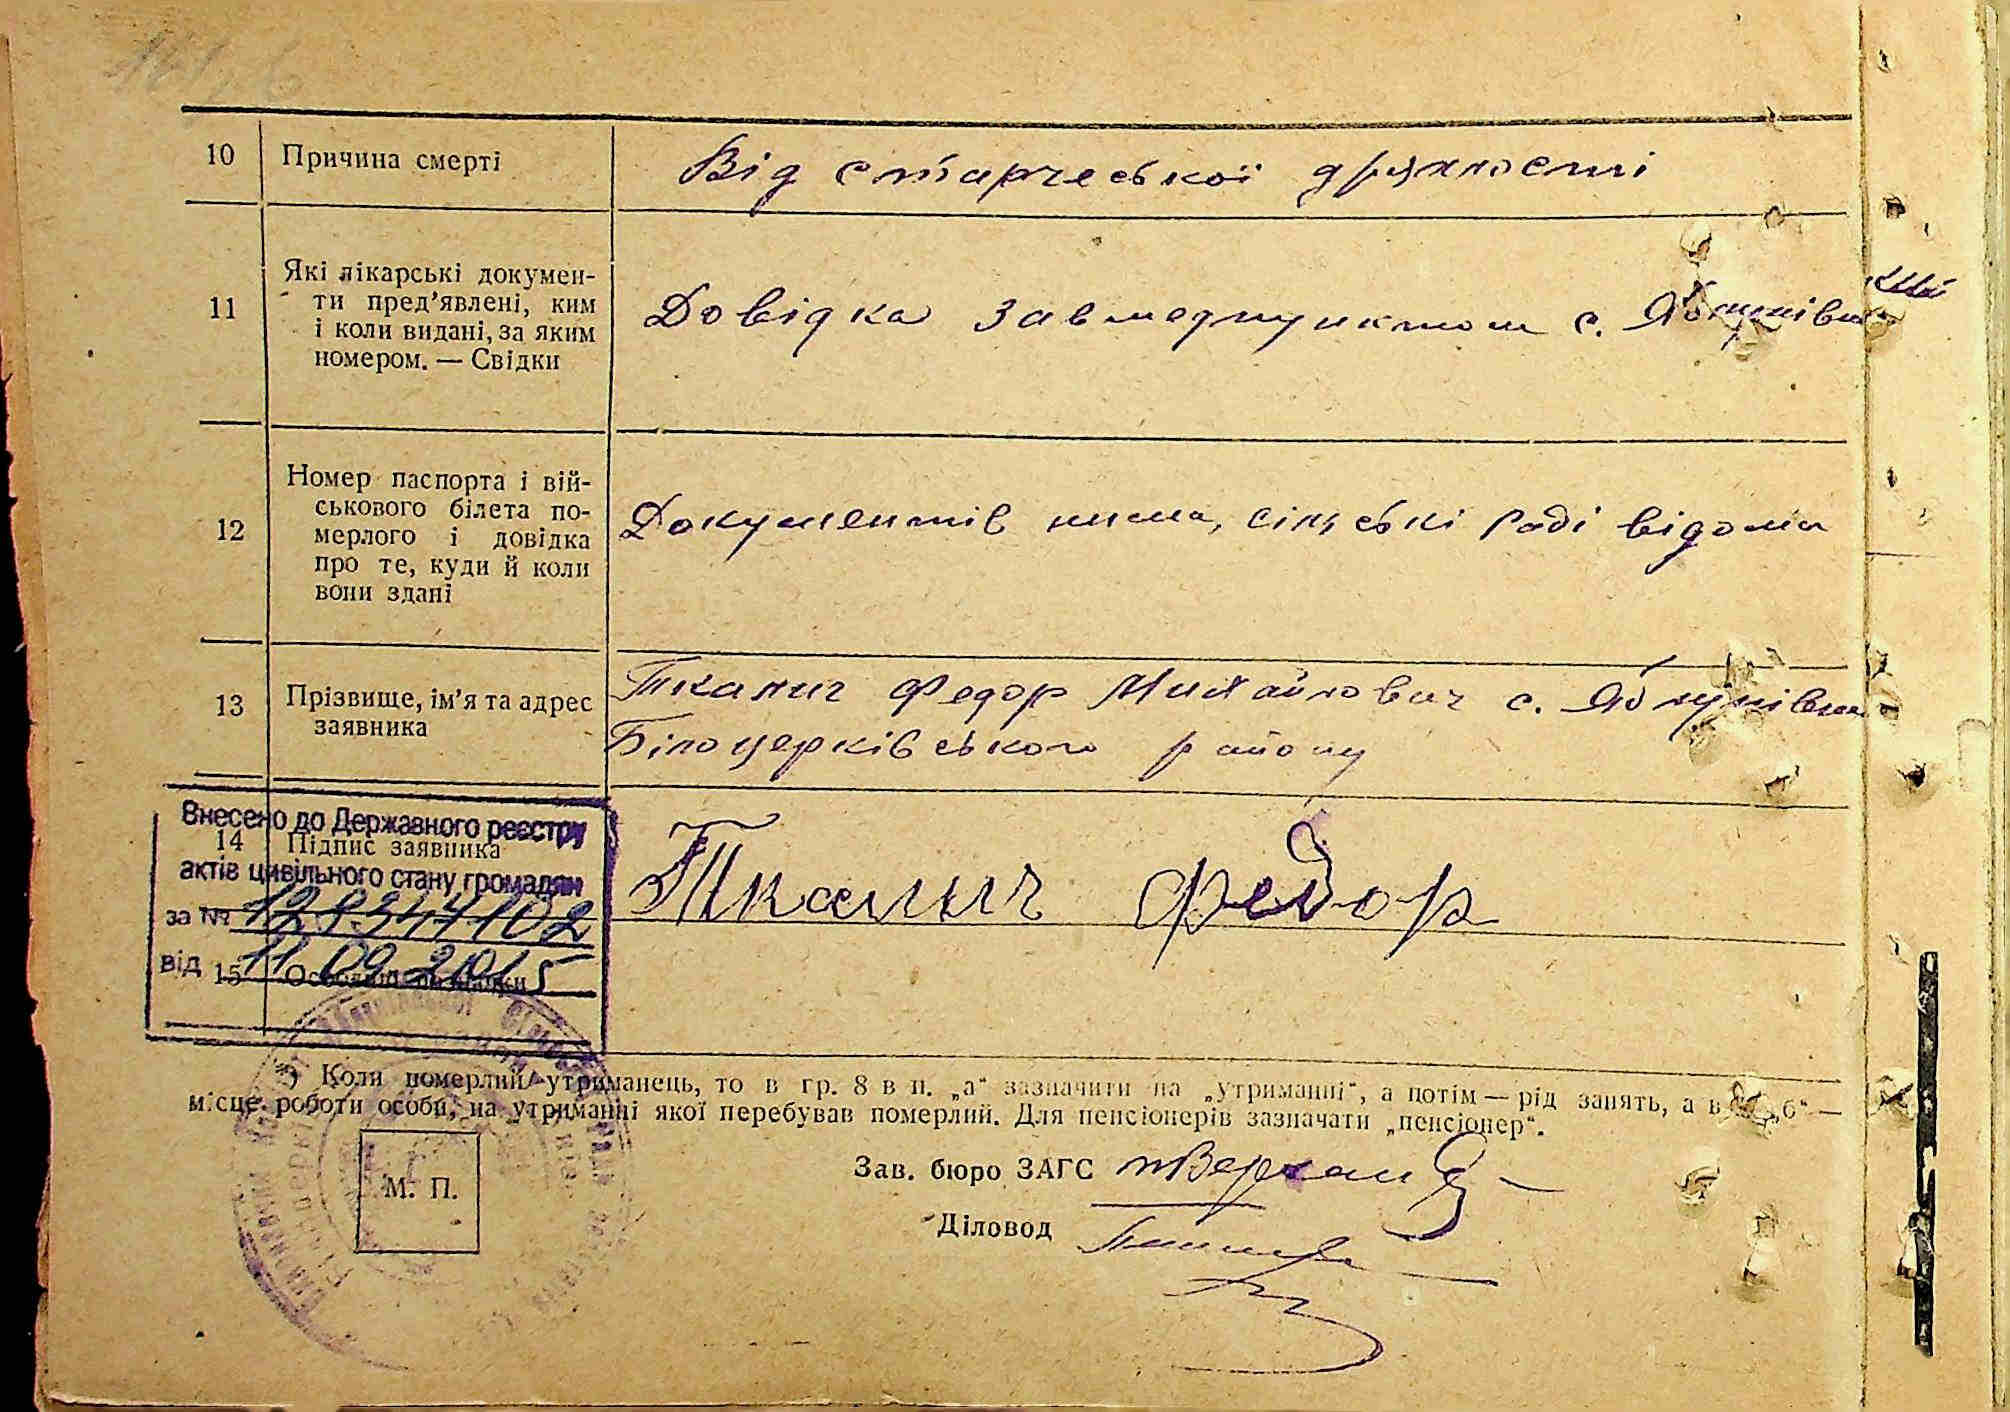 10 Причина смерті Від старческої дряхлості
11 Які лікарські докумен-
ти пред’явлені, ким
і коли видані, за яким
номером. — Свідки
Довідка завмедпунктом с. Яблунівки
12 Номер паспорта і вій-
ськового білета по-
мерлого і довідка
про те, куди й коли
вони здані
Документів нима, сільські раді відома
13 Прізвище, ім’я та адрес
заявника
Ткалич Федор Михайлович с. Яблунівка
Білоцерківського району
Внесено до Державного реєстру
14 Підпис заявника
Ткалыч Федор
актів цивільного стану громадян
за №
від 11.09.2015
15
*) Коли померлий утриманець, то в гр. 8 в п. „а“ зазначити на „утриманні“, а потім — рід занять, а в „б“ —
місце роботи особи, на утриманні якої перебував померлий. Для пенсіонерів зазначати „пенсіонер“.
М. П.
Зав. бюро ЗАГС
Діловод